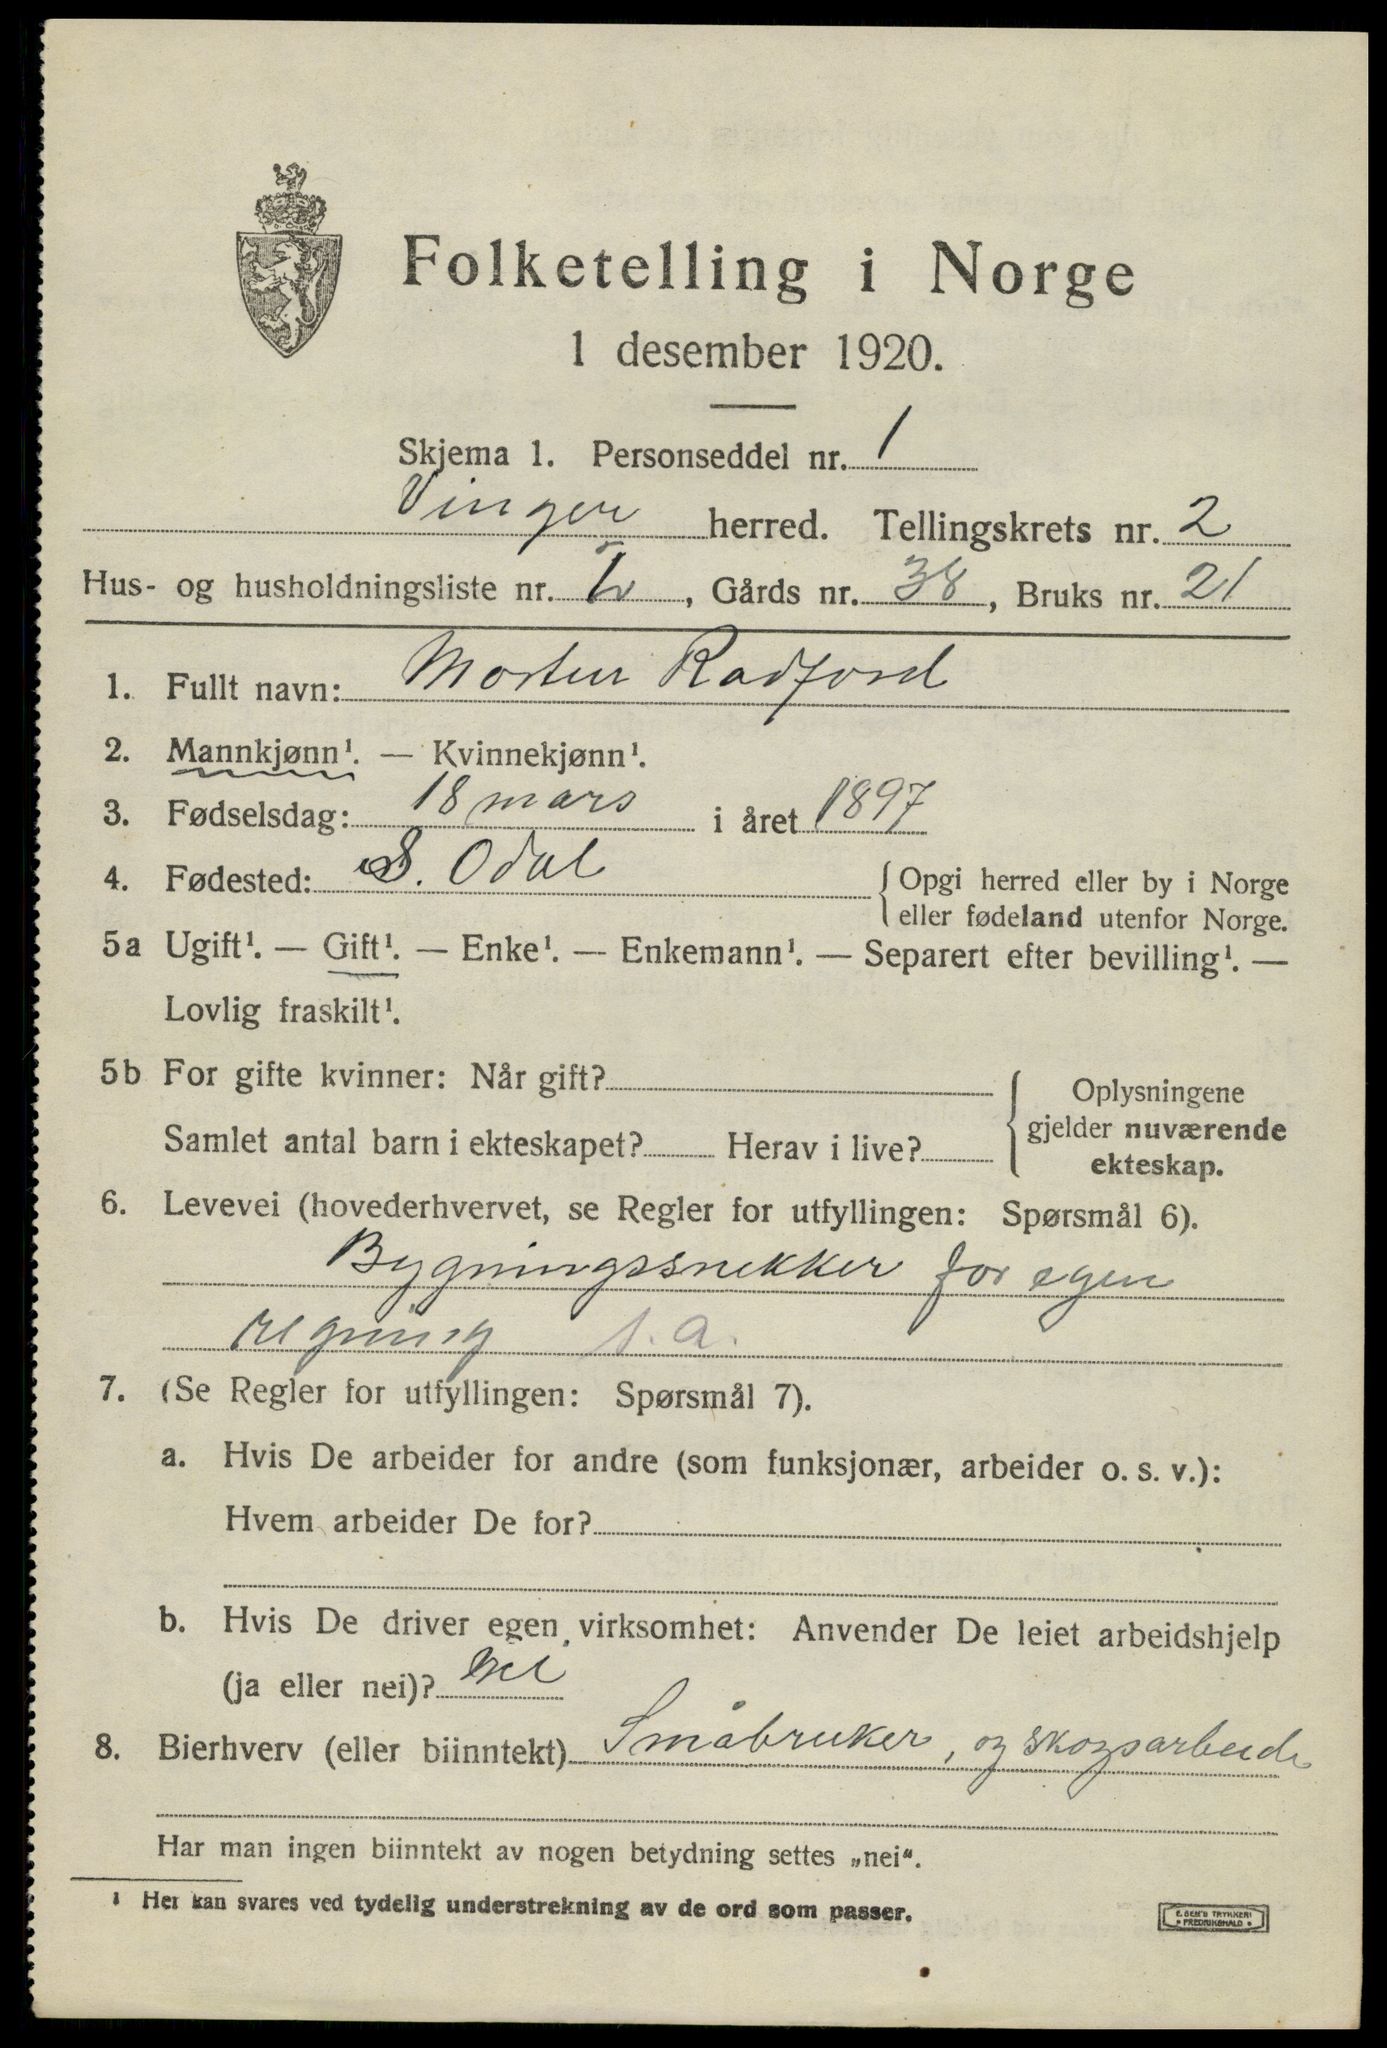 Folketelling i Norge
1 desember 1920.
Skjema 1. Personseddel nr. 1
Vinger herred. Tellingskrets nr. 2
Hus- og husholdningsliste nr. , Gårds nr. 38, Bruks nr. 21
1. Fullt navn: Morten Radford
2. Mannkjønn¹. — Kvinnekjønn¹.
3. Fødselsdag: 18 mars i året 1897
4. Fødested: S. Odal { Opgi herred eller by i Norge
eller fødeland utenfor Norge.
5a Ugift¹. — Gift¹. — Enke¹. — Enkemann¹. — Separert efter bevilling¹. —
Lovlig fraskilt¹.
5b For gifte kvinner: Når gift?
Samlet antal barn i ekteskapet? Herav i live?
{ Oplysningene
gjelder nuværende
ekteskap.
6. Levevei (hovederhvervet, se Regler for utfyllingen: Spørsmål 6).
Bygningssnekker for egen
regning s.a.
7. (Se Regler for utfyllingen: Spørsmål 7).
a. Hvis De arbeider for andre (som funksjonær, arbeider o. s. v.):
Hvem arbeider De for?
b. Hvis De driver egen virksomhet: Anvender De leiet arbeidshjelp
(ja eller nei)? Nei
8. Bierhverv (eller biinntekt) Småbruker, og skogsarbeide
Har man ingen biinntekt av nogen betydning settes „nei“.
¹ Her kan svares ved tydelig understrekning av de ord som passer.
E. SEM'S TRYKKERI
• FREDRIKSHALD •